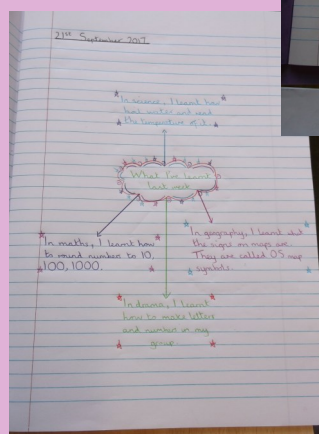 21st September 2017
In science, I learnt how
heat water and read
the temperature of it.
What I've learnt
last week
In maths, I learnt how
to round number to 10,
100, 1000.
In geography, I learnt what
the signs on maps are.
They are called OS map
symbols.
In drama, I learnt
how to make letters
and number in my
group.